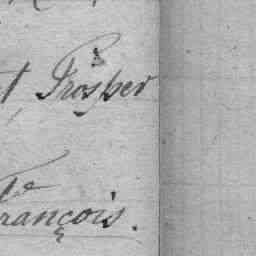 t, Prosper
François.